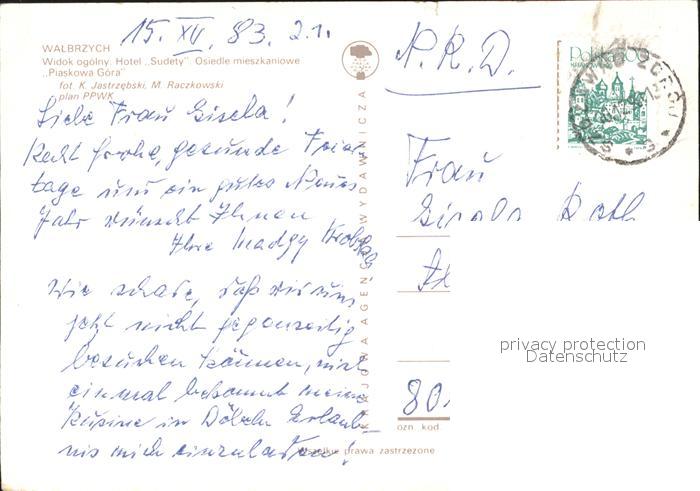 15. XII. 83.
WAŁBRZYCH
Widok ogólny. Hotel „Sudety”. Osiedle mieszkaniowe
„Piaskowa Góra”
fot. K. Jastrzębski, M. Raczkowski
plan PPWK
Liebe Frau Gisela!
Recht frohe, gesunde Feier-
tage und ein gutes Neues
Jahr wünscht Ihnen
Ihre Madzy
Wie schade, daß wir uns
jetzt nicht gegenseitig
besuchen können, nicht
einmal bekommt meine
Kusine in Döbeln Erlaub-
nis mich einzuladen!
KRAJOWA AGENCJA WYDAWNICZA
Wszelkie prawa zastrzeżone
N.R.D.
Polska
Frau
Gisela Roth
80
ozn. kod
privacy protection
Datenschutz